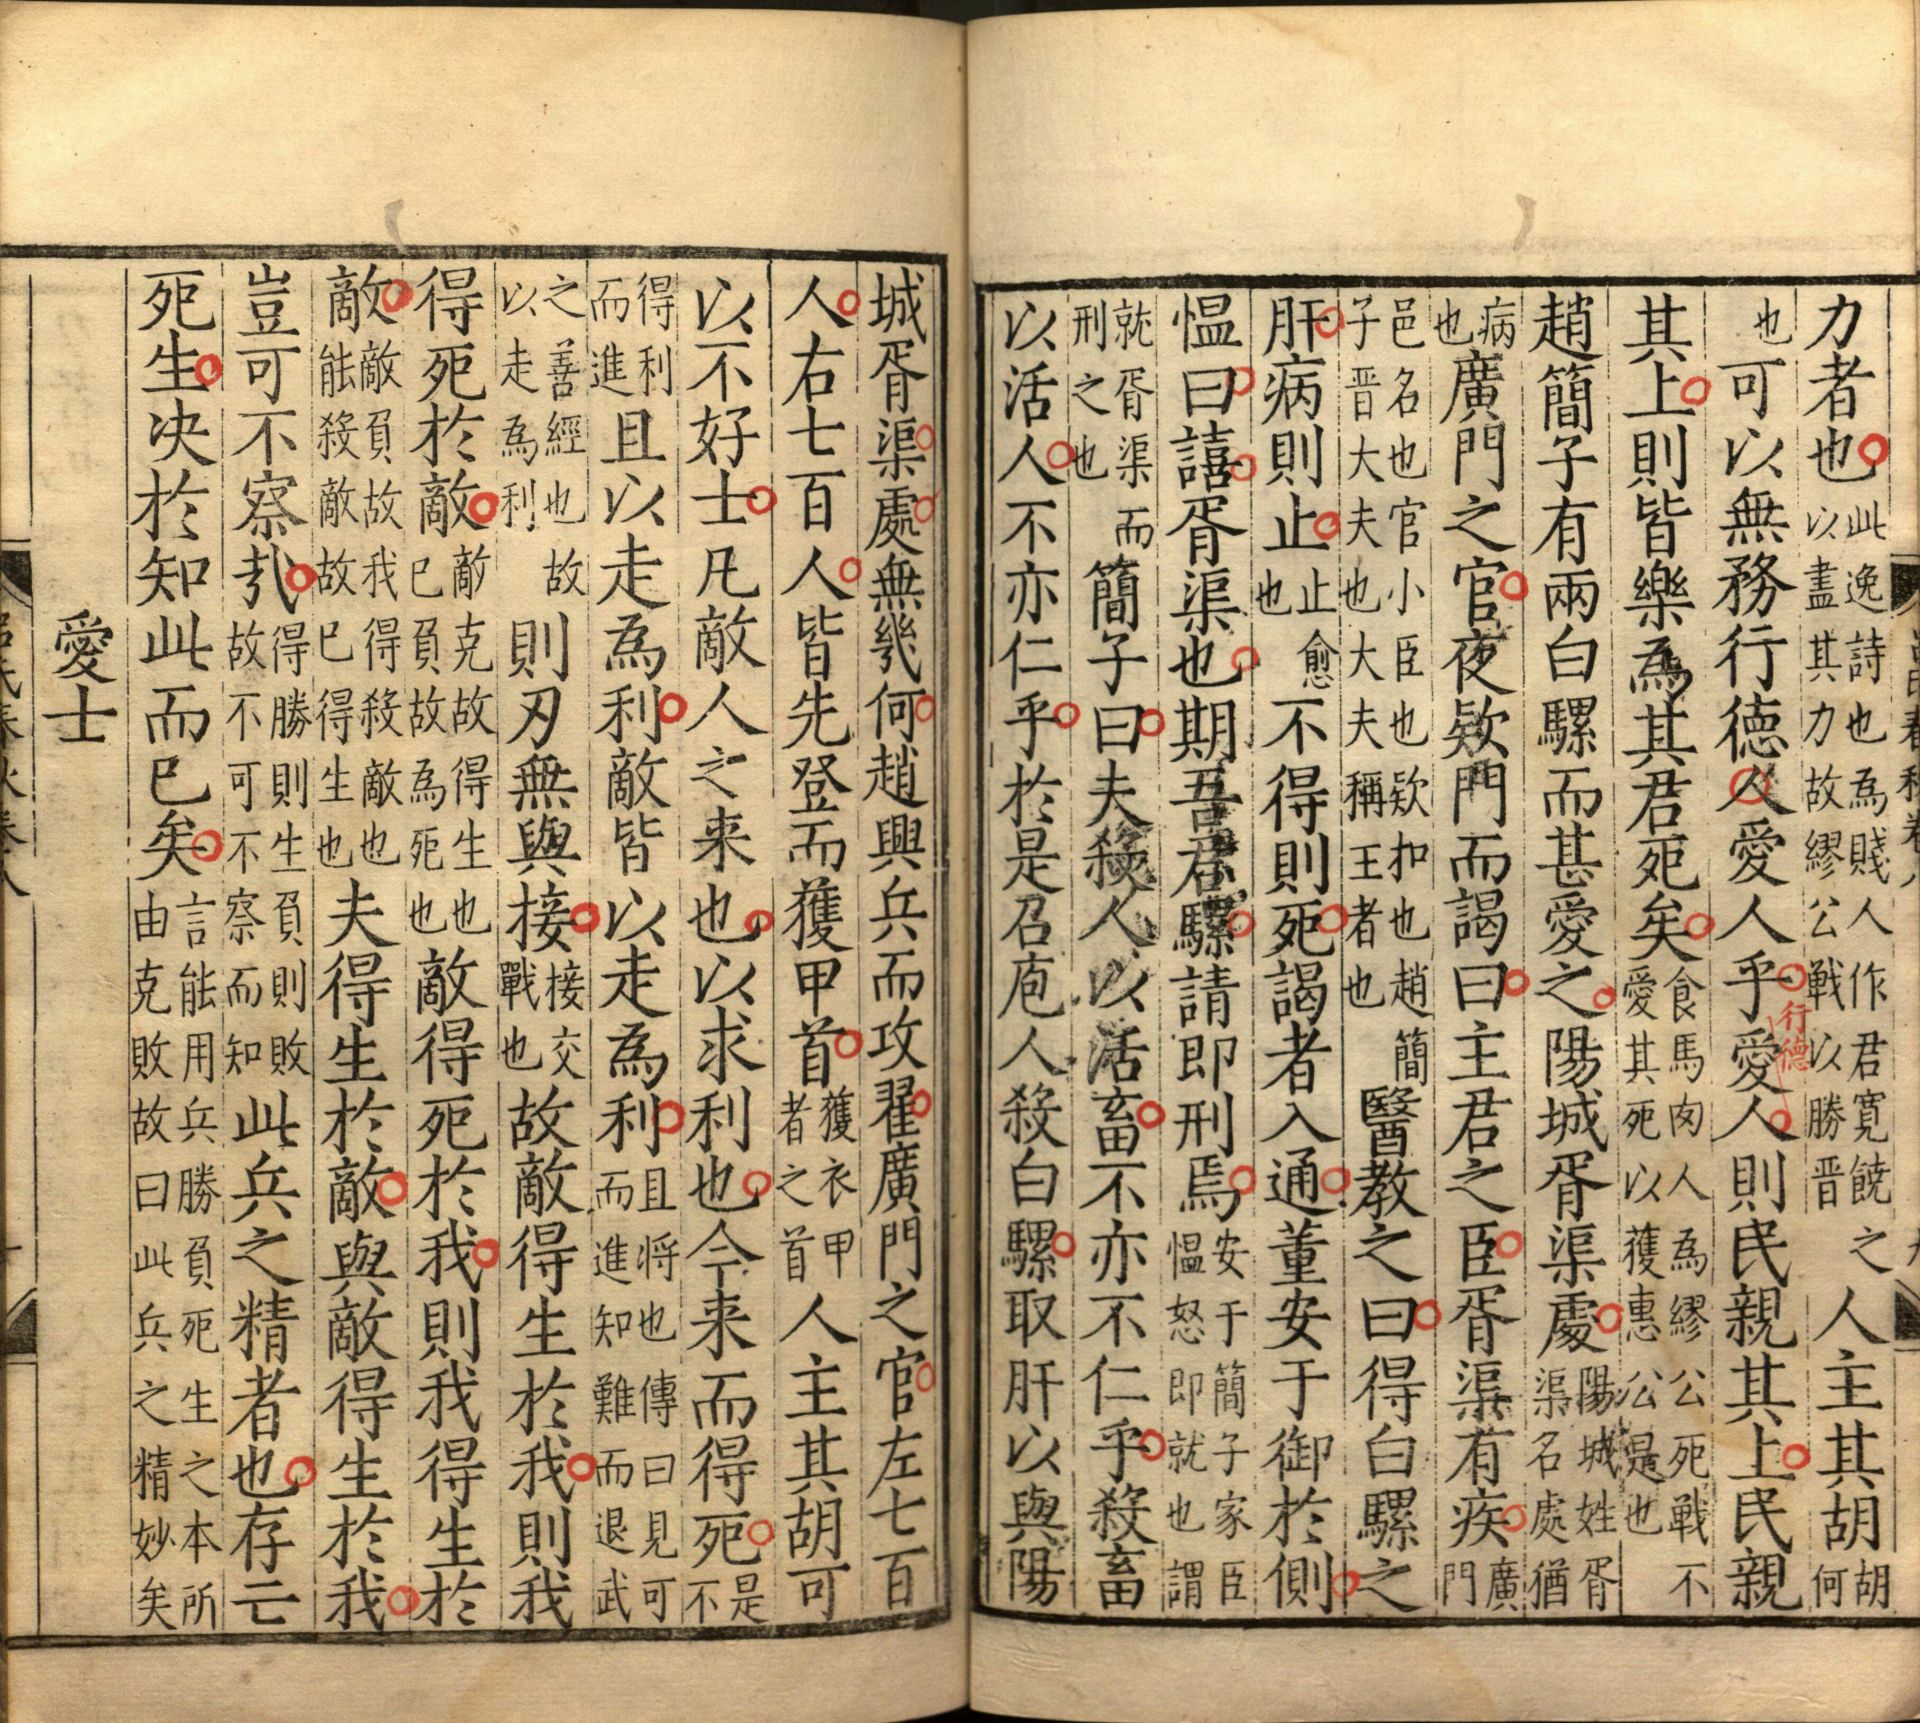 力者也此逸詩也為賤人作君寬饒之以盡其力故繆公戰以勝晉人主其胡胡何
也可以無務行德人愛人乎行德愛人則民親其上民親
其上則皆樂為其君死矣食馬肉人為繆公死戰不愛其死以獲惠公是也
趙簡子有兩白騾而甚愛之陽城胥渠處陽城姓胥渠名處猶
病也廣門之官夜欵門而謁曰主君之臣胥渠有疾廣門
邑名也官小臣也欵扣也趙簡子晉大夫也大夫稱王者也醫教之曰得白騾之
肝病則止止愈也不得則死謁者入通董安于御於側
慍曰譆胥渠也期吾君騾請即刑焉安于簡子家臣慍怒即就也謂
就胥渠而刑之也簡子曰夫殺人以活畜不亦不仁乎殺畜
以活人不亦仁乎於是召庖人殺白騾取肝以與陽
城胥渠處無幾何趙興兵而攻翟廣門之官左七百
人右七百人皆先登而獲甲首獲衣甲者之首人主其胡可
以不好士凡敵人之来也以求利也今来而得死是不
得利而進且以走為利敵皆以走為利且将也傳曰見可而進知難而退武
之善經也故以走為利則刃無與接接交戰也故敵得生於我則我
得死於敵敵克故得生也已負故為死也敵得死於我則我得生於
敵敵負故我得殺敵也能殺敵故已得生也夫得生於敵與敵得生於我
豈可不察㢤得勝則生負則敗故不可不察而知此兵之精者也存亡
死生决於知此而已矣言能用兵勝負死生之本所由克敗故曰此兵之精妙矣
愛士